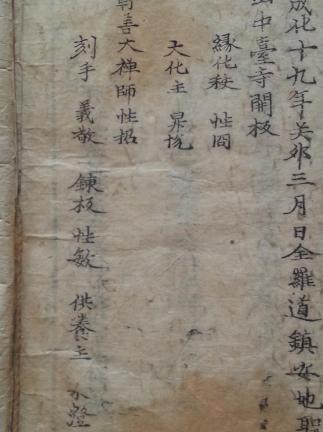 成化十九年癸卯三月日全羅道鎮安地聖
山中臺寺開板
緣化秩 性囧
大化主 杲悅
前善大禪師性招
刻手 義敬 鍊板 性敏 供養主 水登